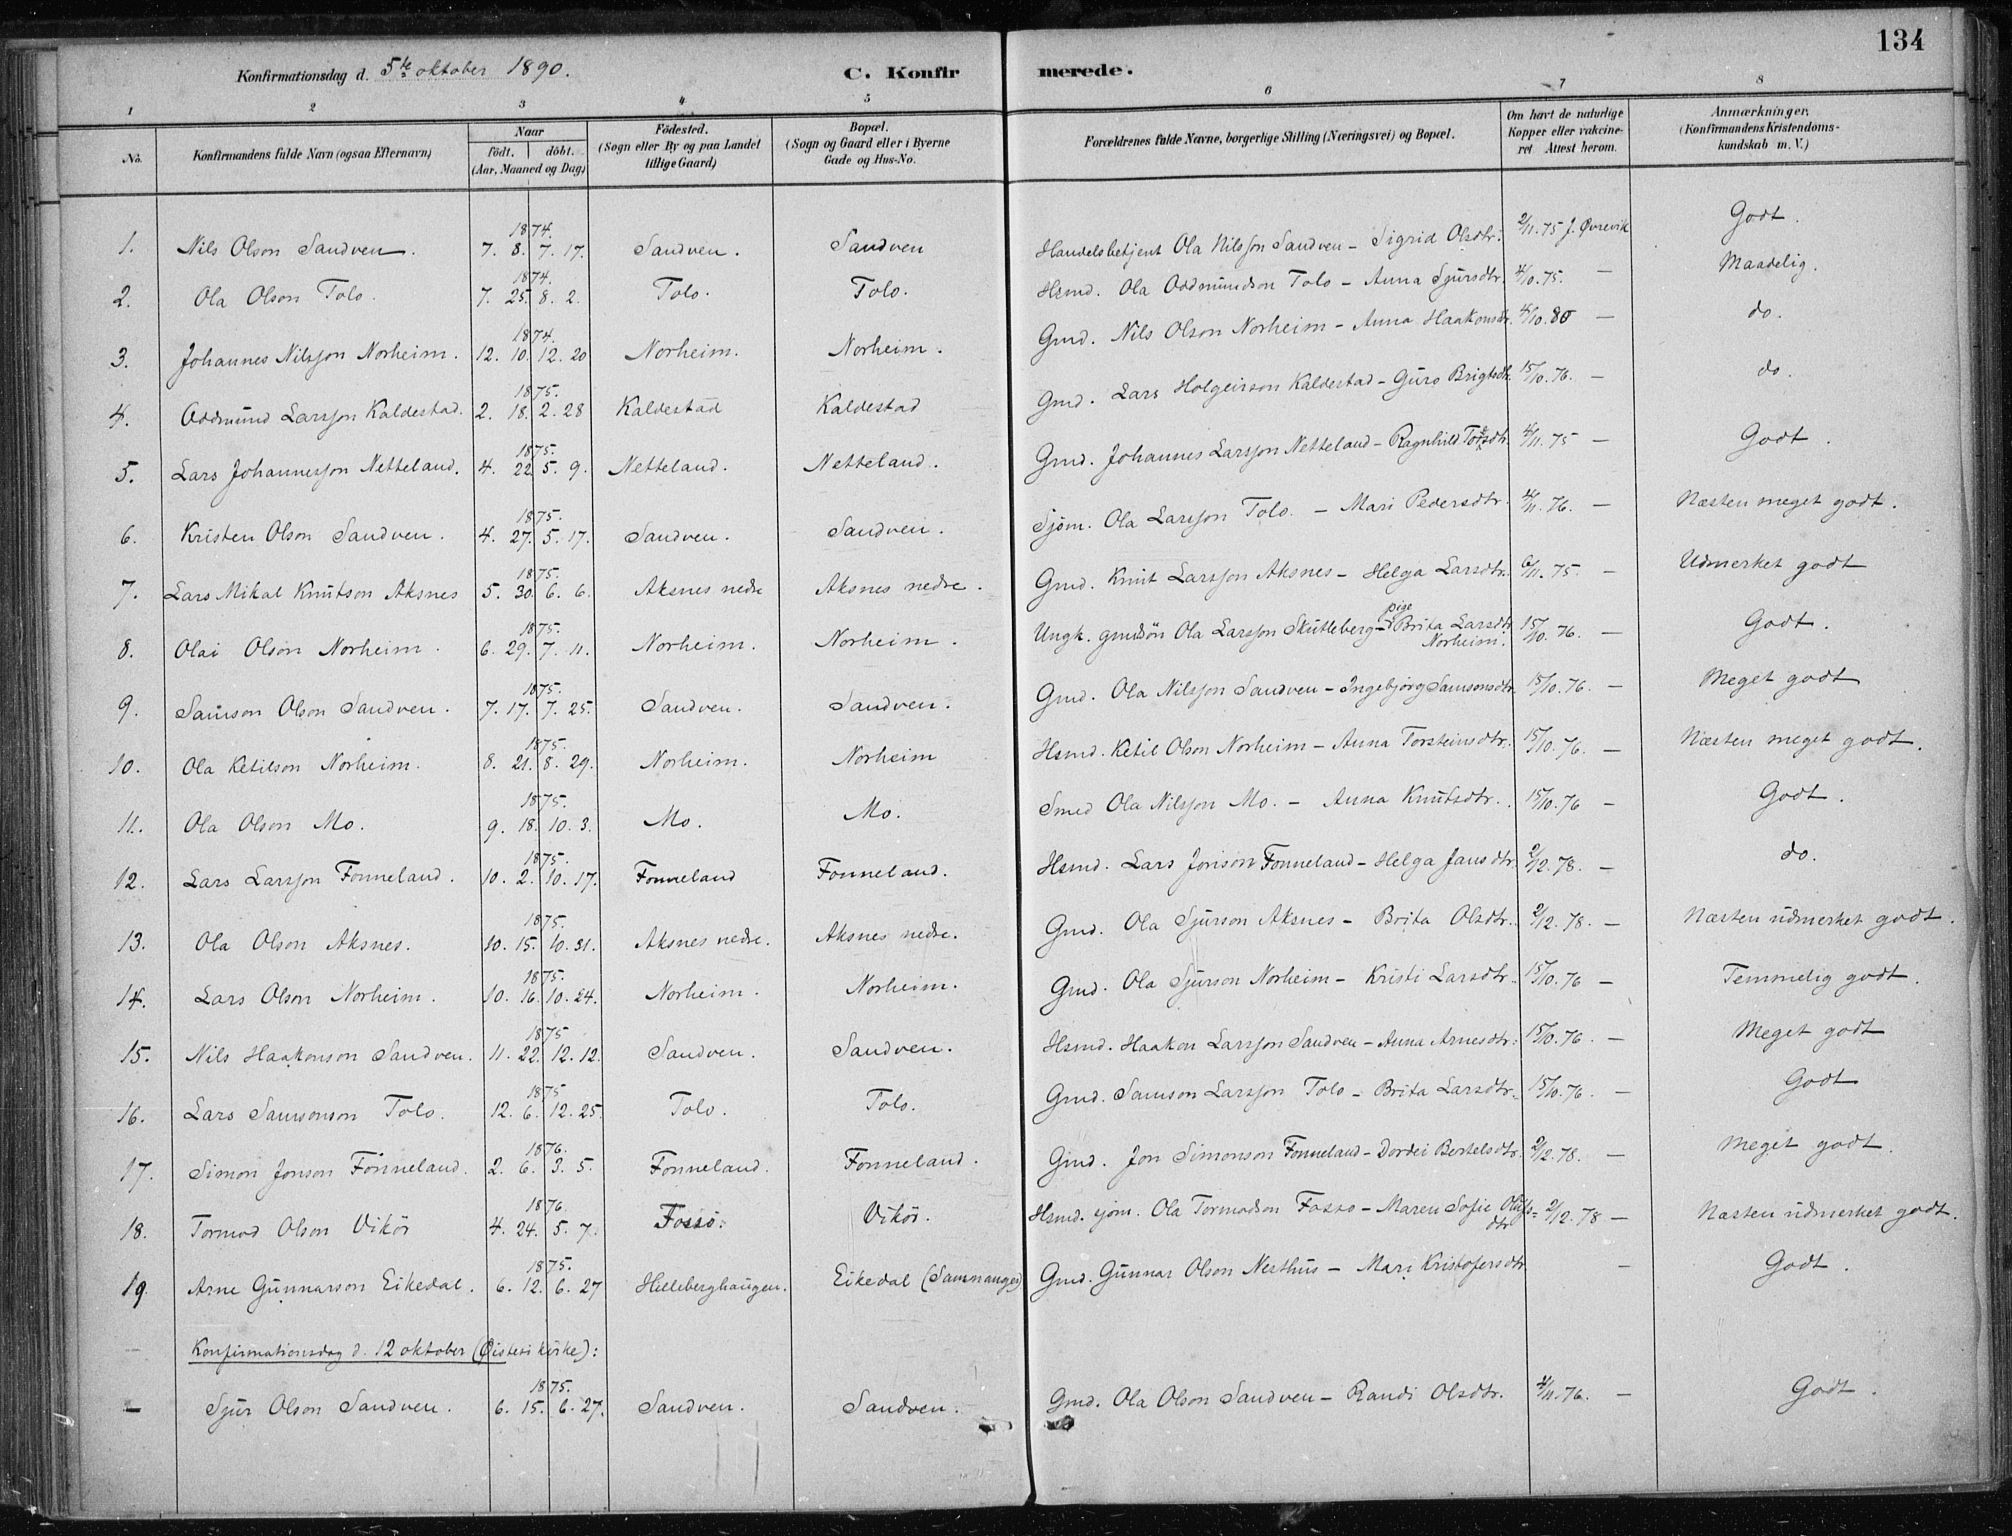 134
Konfirmationsdag d. 5te oktober 1890. C. Konfirmerede.
1 2 3 4 5 6 7 8
No. Konfirmandens fulde Navn (ogsaa Efternavn) Naar født. døbt. (Aar, Maaned og Dag) Födested. (Sogn eller By og paa Landet tillige Gaard) Bopæl. (Sogn og Gaard eller i Byerne Gade og Hus-No. Forældrenes fulde Navne, borgerlige Stilling (Næringsvei) og Bopæl. Om havt de naturlige Kopper eller vakcineret Attest herom. Anmærkninger. (Konfirmandens Kristendomskundskab m. V.)
1874.
1. Nils Olson Sandven. 7. 8. 7. 17. Sandven. Sandven Handelsbetjent Ola Nilsson Sandven – Sigrid Olsdtr. 2/11. 75 J. Øvrevik Godt.
1874.
2. Ola Olson Tolo. 7. 25. 8. 2. Tolo. Tolo. Hsmd. Ola Oddmundson Tolo – Anna Sjursdtr. 4/10. 75. – Maadelig.
1874.
3. Johannes Nilsson Norheim. 12. 10. 12. 20 Norheim. Norheim. Gmd. Nils Olson Norheim – Anna Haakonsdtr. 4/10. 80 – do.
1875.
4. Oddmund Larsson Kaldestad. 2. 18. 2. 28 Kaldestad Kaldestad Gmd. Lars Holgeirson Kaldestad – Guro Brigtsdtr. 15/10. 76. – do.
1875.
5. Lars Johannesson Netteland. 4. 22 5. 9. Netteland. Netteland. Gmd. Johannes Larsson Netteland – Ragnhild 4/11. 75 – Godt.
1875.
6. Kristen Olson Sandven. 4. 27. 5. 17. Sandven. Sandven. Sjöm. Ola Larsson Tolo. – Mari Pedersdtr. 4/11. 76. – Næsten meget godt.
1875.
7. Lars Mikal Knutson Aksnes 5. 30. 6. 6. Aksnes nedre Aksnes nedre. Gmd. Knut Larsson Aksnes – Helga Larsdtr. 6/11. 75. – Udmerket godt
1875.
8. Olai Olson Norheim. 6. 29. 7. 11. Norheim. Norheim. Ungk. gmdsön Ola Larsson Skutleberg – pige Brita Larsdtr. Norheim. 15/10. 76. – Godt.
1875.
9. Samson Olson Sandven. 7. 17. 7. 25. Sandven. Sandven. Gmd. Ola Nilsson Sandven – Ingebjörg Samsonsdtr. 15/10. 76. – Meget godt
1875.
10. Ola Ketilson Norheim. 8. 21. 8. 29. Norheim. Norheim Hsmd. Ketil Olson Norheim – Anna Torsteinsdtr. 15/10. 76. – Næsten meget godt.
1875.
11. Ola Olson Mo. 9. 18. 10. 3. Mo. Mo. Smed Ola Nilsson Mo. – Anna Knutsdtr. 15/10. 76 – Godt.
1875.
12. Lars Larsson Fonneland. 10. 2. 10. 17. Fonneland Fonneland. Hsmd. Lars Jonson Fonneland – Helga Jansdtr. 2/12. 78. – do.
1875.
13. Ola Olson Aksnes. 10. 15. 10. 31. Aksnes nedre. Aksnes nedre. Gmd. Ola Sjurson Aksnes – Brita Olsdtr. 2/12. 78. – Næsten udmerket godt.
1875.
14. Lars Olson Norheim. 10. 16. 10. 24. Norheim. Norheim. Gmd. Ola Sjurson Norheim – Kristi Larsdtr. 15/10. 76 – Temmelig godt.
1875
15. Nils Haakonson Sandven. 11. 22. 12. 12. Sandven. Sandven. Hsmd. Haakon Larsson Sandven – Anna Arnesdtr. 15/10. 76. – Meget godt
1875
16. Lars Samsonson Tolo. 12. 6. 12. 25. Tolo. Tolo. Gmd. Samson Larsson Tolo – Brita Larsdtr. 15/10. 76. – Godt
1876.
17. Simon Jonson Fonneland. 2. 6. 3. 5. Fonneland. Fonneland. Gmd. Jon Simonson Fonneland – Dordei Bertelsdtr. 2/12. 78. – Meget godt.
1876.
18. Tormod Olson Vikör 4. 24. 5. 7. Fosso. Vikör. Hsmd. sjöm. Ola Tormodson Fosso – Maren Sofie Olufsdtr 2/12. 78 – Næsten udmerket godt.
1875.
19. Arne Gunnarson Eikedal. 6. 12. 6. 27 Helleberghaugen. Eikedal (Sammanger) Gmd. Gunnar Olson Nerthus – Mari Kristofersdtr – Godt.
– Konfirmationsdag d. 12 oktober (Øistesi kirke):
1875.
– Sjur Olson Sandven. 6. 15. 6. 27. Sandven. Sandven. Gmd. Ola Olson Sandven – Randi Olsdtr. 4/11. 76. – Godt.